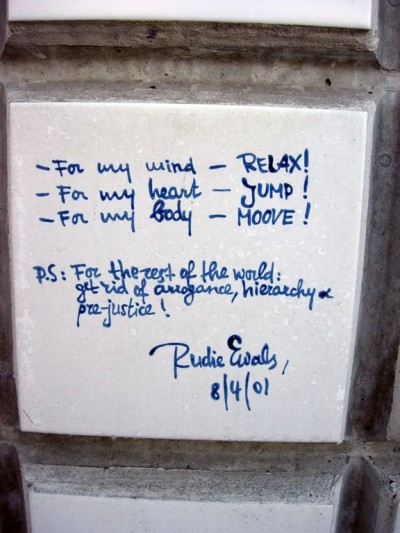 - For my mind - RELAX!
- For my heart - JUMP!
- For my body - MOOVE!
P.S: For the rest of the world:
get rid of arrogance, hierarchy &
pre-justice!
Rudie Ewals,
8/4/01